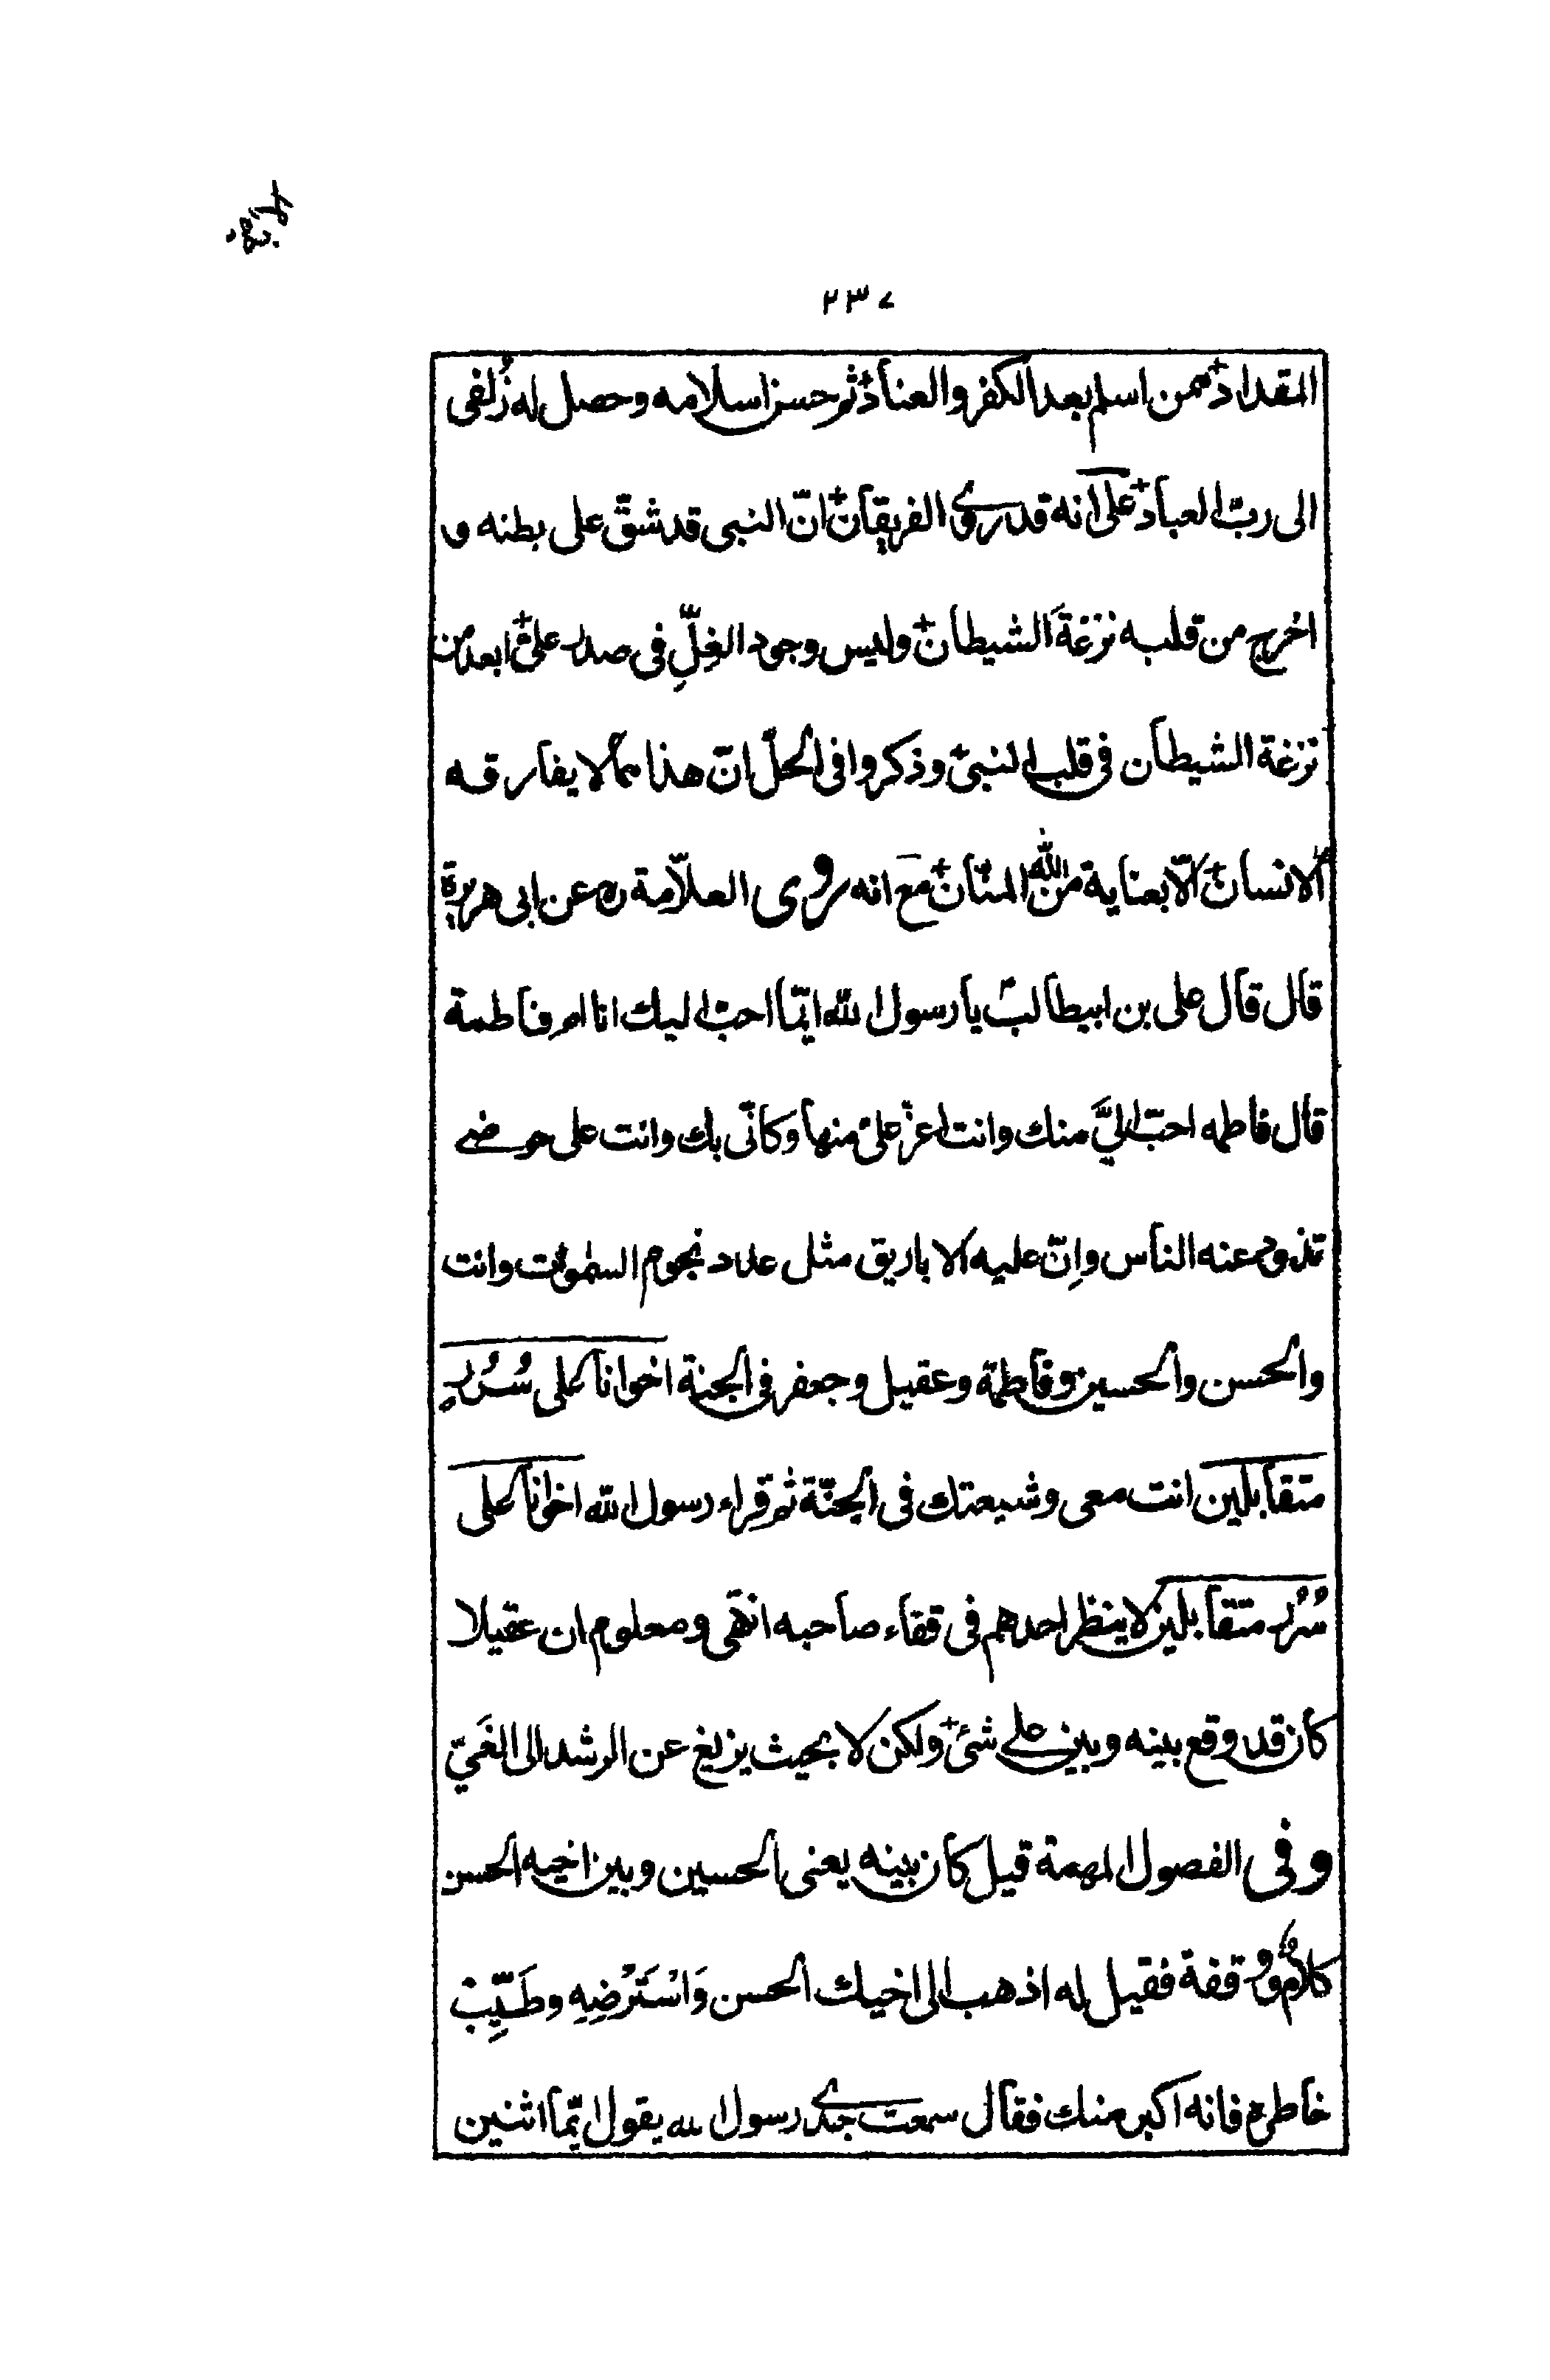 ٢٣٧
المقداد ممن اسلم بعد الكفر والعناد ثم حسن اسلامه وحصل له زُلفى
الى ربّ العباد على انه قد روى الفريقان انّ النبى قد شقّ على بطنه و
اخرج من قلبه نزغة الشيطان وليس وجود الغِلّ فى صدر علىّ ابعد من
نزغة الشيطان فى قلب النبىّ وذكروا فى الحلّ انّ هذا ممّا لا يفارقه
الانسان الّا بعناية من الله المنّان مع انه روى العلّامة ره عن ابى هريرة
قال قال على بن ابيطالب يا رسول الله ايّما احبّ اليك انا ام فاطمة
قال فاطمه احبّ اليَّ منك وانت اعزّ علىّ منها وكانّى بك وانت على حوضى
تذود عنه الناس واِنّ عليه الاباريق مثل عدد نجوم السموات وانت
والحسن والحسين وفاطمة وعقيل وجعفر فى الجنة اخوانا على سُرُرٍ
متقابلين انت معى وشيعتك فى الجنّة ثم قراء رسول الله اخوانا على
سُرُر متقابلين لا ينظر احدهم فى قفاء صاحبه انتهى ومعلوم ان عقيلا
كان قد وقع بينه وبين على شئ ولكن لا بحيث يزيغ عن الرشد الى الغَيّ
وفى الفصول المهمة قيل كان بينه يعنى الحسين وبين اخيه الحسن
كلام ووقفة فقيل له اذهب الى اخيك الحسن وَاسْتَرْضِهِ وطَيِّبْ
خاطره فانه اكبر منك فقال سمعت جدى رسول الله يقول ايّما اثنين